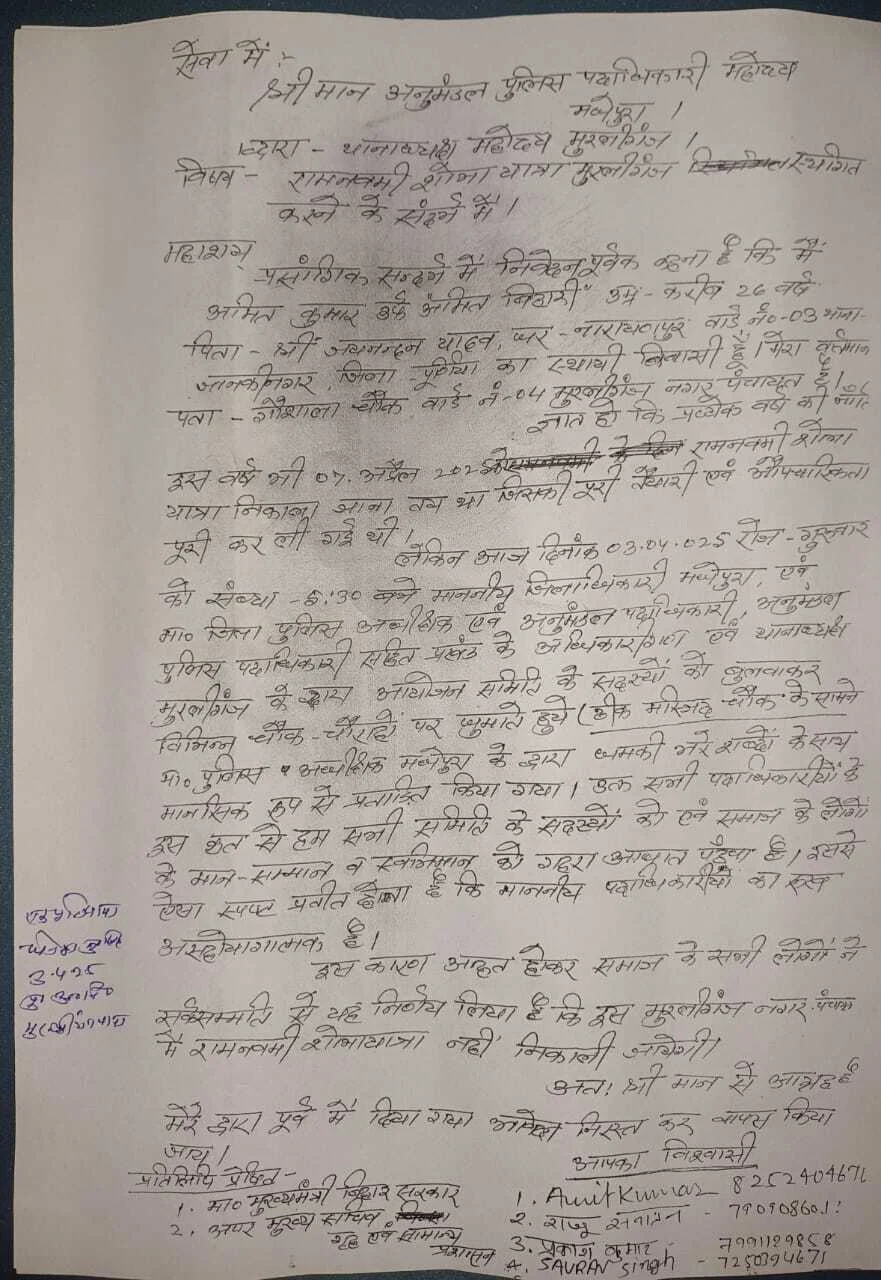 सेवा में :-
श्री मान अनुमंडल पुलिस पदाधिकारी महोदय
मधेपुरा ।
द्वारा - थानाध्यक्ष महोदय मुरलीगंज ।
विषय - रामनवमी शोभा यात्रा मुरलीगंज स्थगित
करने के संदर्भ में ।
महाशय,
प्रसांगिक सन्दर्भ में निवेदन पूर्वक कहना है कि मैं
अमित कुमार उर्फ अमित बिहारी उम्र - करीब 26 वर्ष
पिता - श्री जयनन्दन यादव, घर - नारायणपुर वार्ड नं०-03 थाना-
जानकीनगर, जिला - पूर्णिया का स्थायी निवासी हूँ । मेरा वर्तमान
पता - गौशाला चौक वार्ड नं-04 मुरलीगंज नगर पंचायत है।
ज्ञात हो कि प्रत्येक वर्ष की भाँति
इस वर्ष भी 07 अप्रैल रामनवमी शोभा
यात्रा निकाला जाना तय था जिसकी पूरी तैयारी एवं औपचारिकता
पूरी कर ली गई थी ।
लेकिन आज दिनांक 03.04.025 रोज - गुरुवार
को संध्या - 5:30 बजे माननीय जिलाधिकारी मधेपुरा, एवं
मा० जिला पुलिस अधीक्षक एवं अनुमंडल पदाधिकारी, अनुमंडल
पुलिस पदाधिकारी सहित प्रखंड के अधिकारीगण एवं थानाध्यक्ष
मुरलीगंज के द्वारा आयोजन समिति के सदस्यों को बुलवाकर
विभिन्न चौक - चौराहों पर घुमाते हुये (ठीक मस्जिद चौक के सामने
मा० पुलिस अधीक्षक मधेपुरा के द्वारा धमकी भरे शब्दों के साथ
मानसिक रूप से प्रताड़ित किया गया । उक्त सभी पदाधिकारीयों के
इस कृत से हम सभी समिति के सदस्यों को एवं समाज के लोगों
के मान-सम्मान व स्वभिमान को गहरा आघात पहुँचा है । इससे
ऐसा स्पष्ट प्रतीत होता है कि माननीय पदाधिकारीयों का रुख
असहयोगात्मक है।
इस कारण आहत होकर समाज के सभी लोगों ने
सर्वसम्मति से यह निर्णय लिया है कि इस मुरलीगंज नगर पंचायत
में रामनवमी शोभायात्रा नहीं निकाली जायेगी।
अतः श्री मान से आग्रह है
मेरे द्वारा पूर्व में दिया गया आवेदन निरस्त कर वापस किया
जाय।
आपका विश्वासी
प्रतिलिपि प्रेषित -
1. मा० मुख्यमंत्री बिहार सरकार
2. अपर मुख्य सचिव
गृह एवं सामान्य
प्रशासन
1. Amit Kumar 8252404671
2. राजू - 790908601
3. प्रकाश कुमार - 7991129858
4. SAURAV Singh - 7250394671
3.4.25